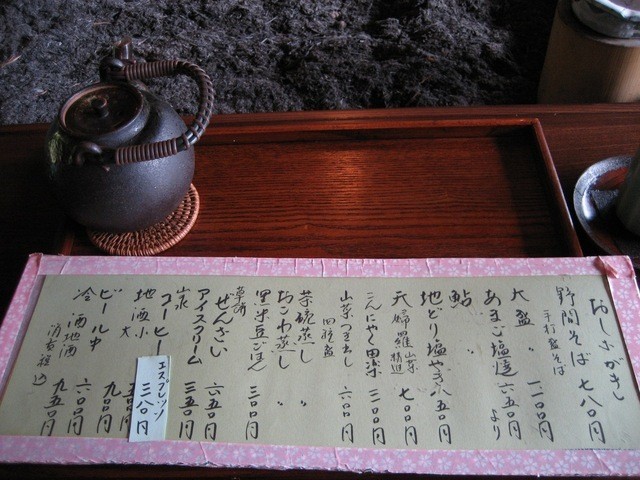 おしながき
野間そば 七八〇円
手打盛そば
大盛 〃 一一〇〇円
あまご塩焼 六五〇円より
鮎 〃 〃
地どり塩やき 八五〇円
天婦羅 山菜 精進 七〇〇円
こんにゃく田楽 三〇〇円
山菜つき出し 四種盛 六〇〇円
茶碗蒸し 〃
おこわ蒸し 〃
黒米豆ごはん 三〇〇円
ぜんざい 六五〇円
アイスクリーム 三五〇円
コーヒー
エスプレッソ 三八〇円
地酒 小 五〇〇円
大 九〇〇円
ビール 中 六〇〇円
冷酒 地酒 九五〇円
消費税込